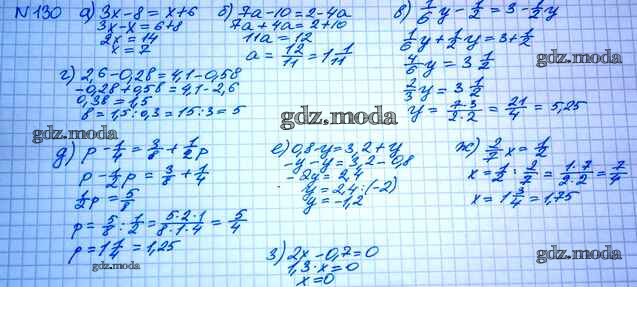 №130 а) 3x-8=x+6
3x-x=6+8
2x=14
x=7
б) 7a-10=2-4a
7a+4a=2+10
11a=12
a=12/11=1 1/11
в) 1/6y-1/2=3-1/2y
1/6y+1/2y=3+1/2
4/6y=3 1/2
2/3y=3 1/2
y=7·3/2·2=21/4=5,25
г) 2,6-0,2в=4,1-0,5в
-0,2в+0,5в=4,1-2,6
0,3в=1,5
в=1,5:0,3=15:3=5
gdz.moda
gdz.moda
gdz.moda
д) p-1/4=3/8+1/2p
p-1/2p=3/8+1/4
1/2p=5/8
p=5/8:1/2=5·2·1/8·1·4=5/4
p=1 1/4=1,25
gdz.moda
е) 0,8-y=3,2+y
-y-y=3,2-0,8
-2y=2,4
y=2,4:(-2)
y=-1,2
ж) 2/7x=1/2
x=1/2:2/7=1·7/2·2=7/4
x=1 3/4=1,75
gdz.moda
з) 2x-0,7=0
1,3·x=0
x=0
gdz.moda